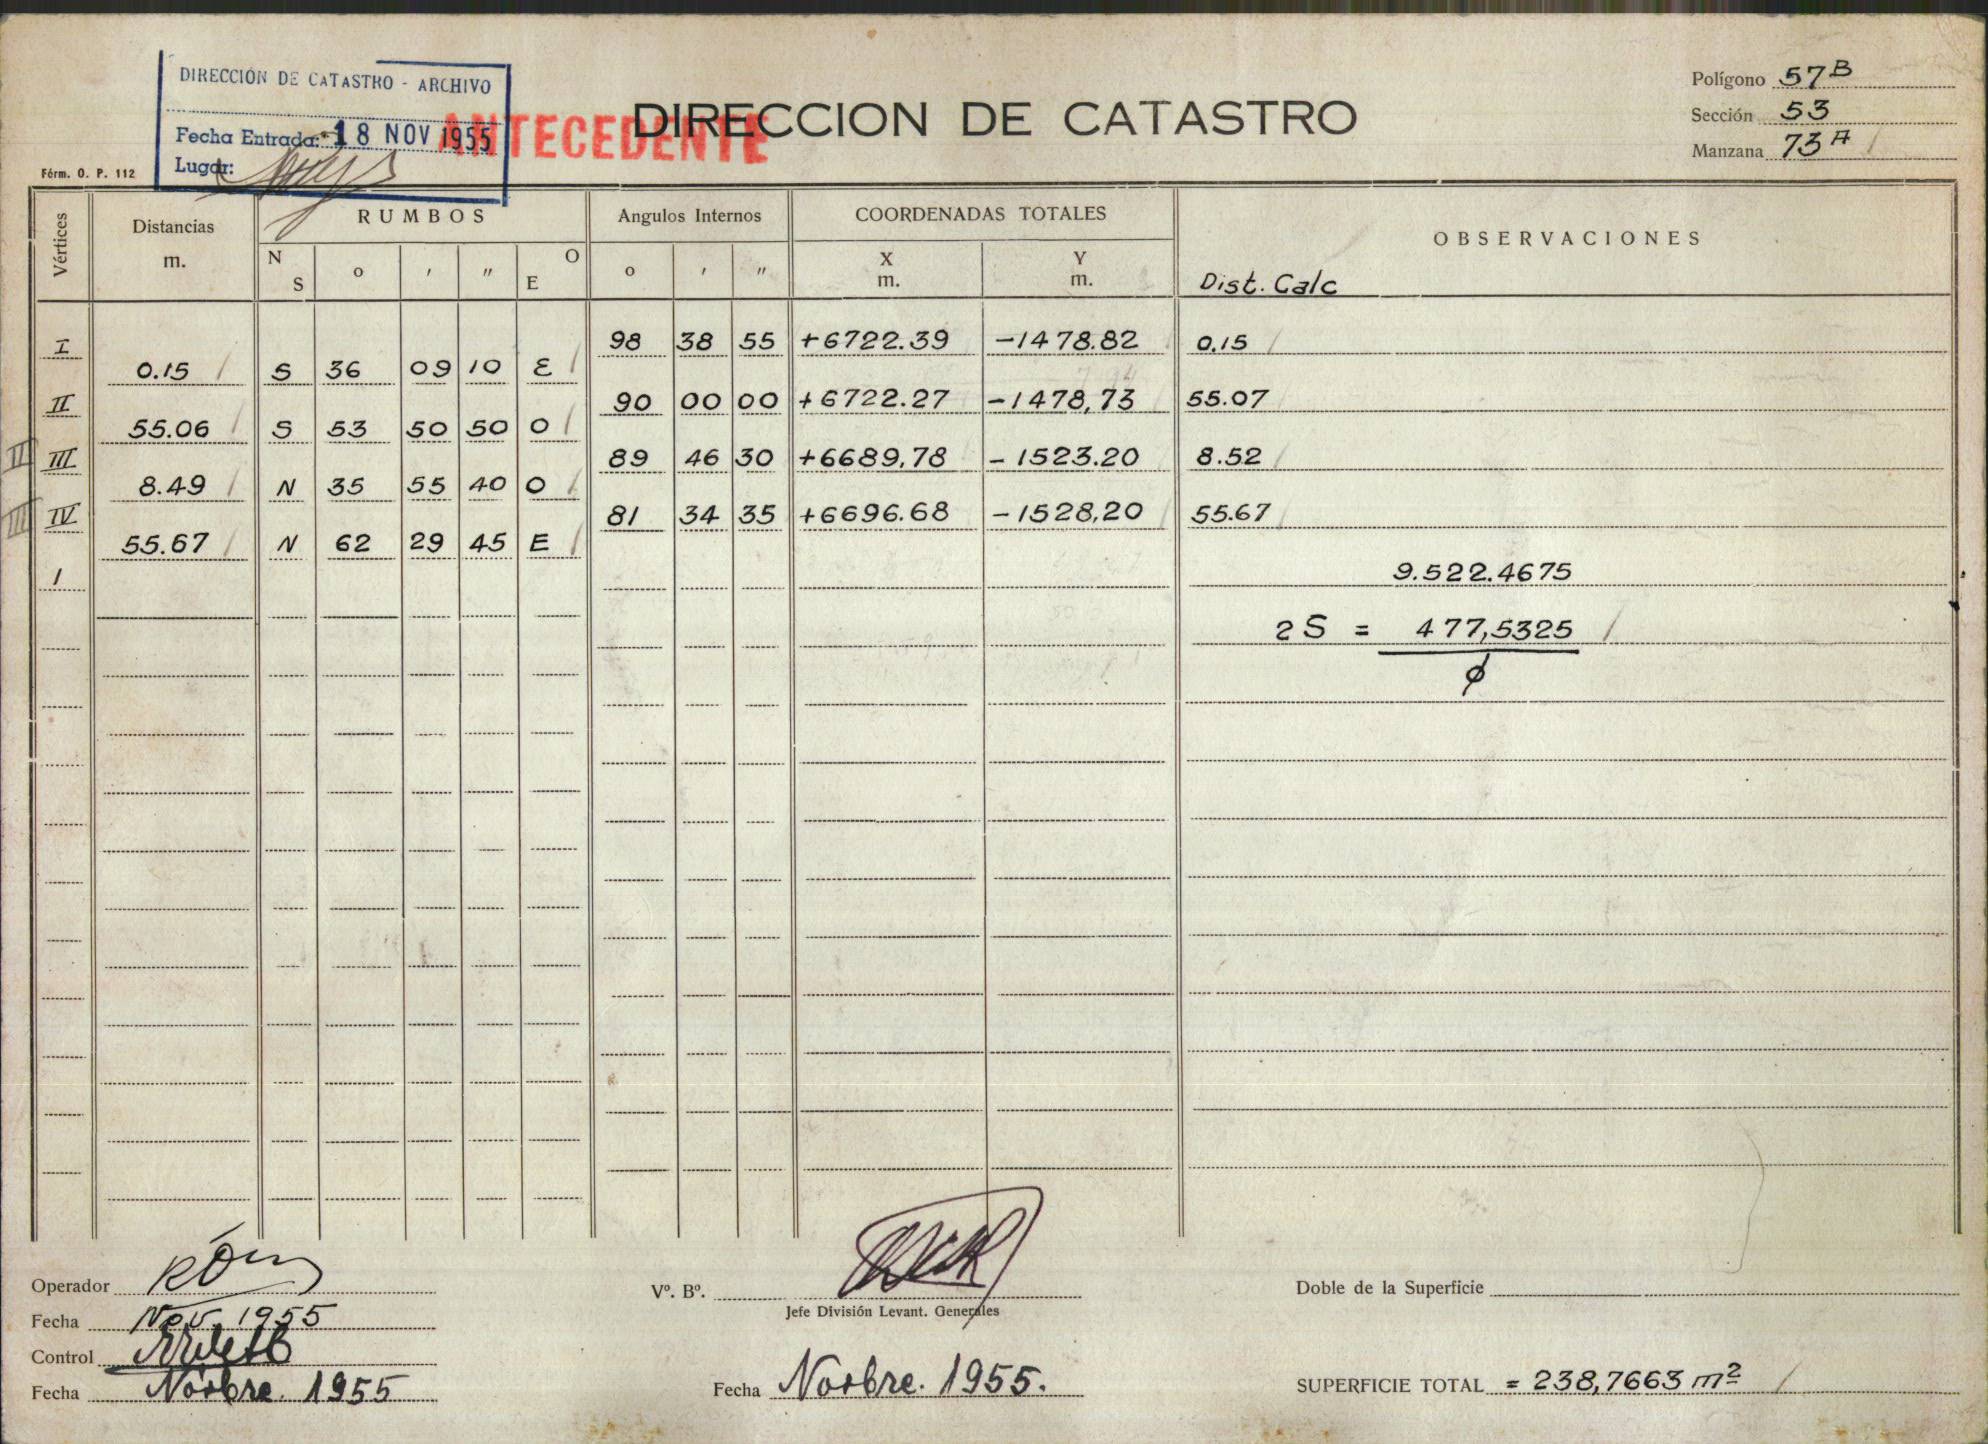 DIRECCIÓN DE CATASTRO - ARCHIVO
Fecha Entrada: 18 NOV 1955
Lugar:
ANTECEDENTE
DIRECCION DE CATASTRO
Polígono 57 B
Sección 53
Manzana 73 A
Fórm. O. P. 112
Vértices
Distancias m.
RUMBOS
N S o ' " O E
Angulos Internos
o ' "
COORDENADAS TOTALES
X m. Y m.
OBSERVACIONES
Dist. Calc
I 98 38 55 +6722.39 -1478.82 0.15
0.15 S 36 09 10 E
II 90 00 00 +6722.27 -1478,73 55.07
55.06 S 53 50 50 O
II III 89 46 30 +6689,78 -1523.20 8.52
8.49 N 35 55 40 O
III IV 81 34 35 +6696.68 -1528,20 55.67
55.67 N 62 29 45 E
I 9.522.4675
2 S = 477,5325
ϕ
Operador
Fecha Nov. 1955
Control
Fecha Novbre. 1955
Vº. Bº.
Jefe División Levant. Generales
Fecha Novbre. 1955.
Doble de la Superficie
SUPERFICIE TOTAL = 238,7663 m²